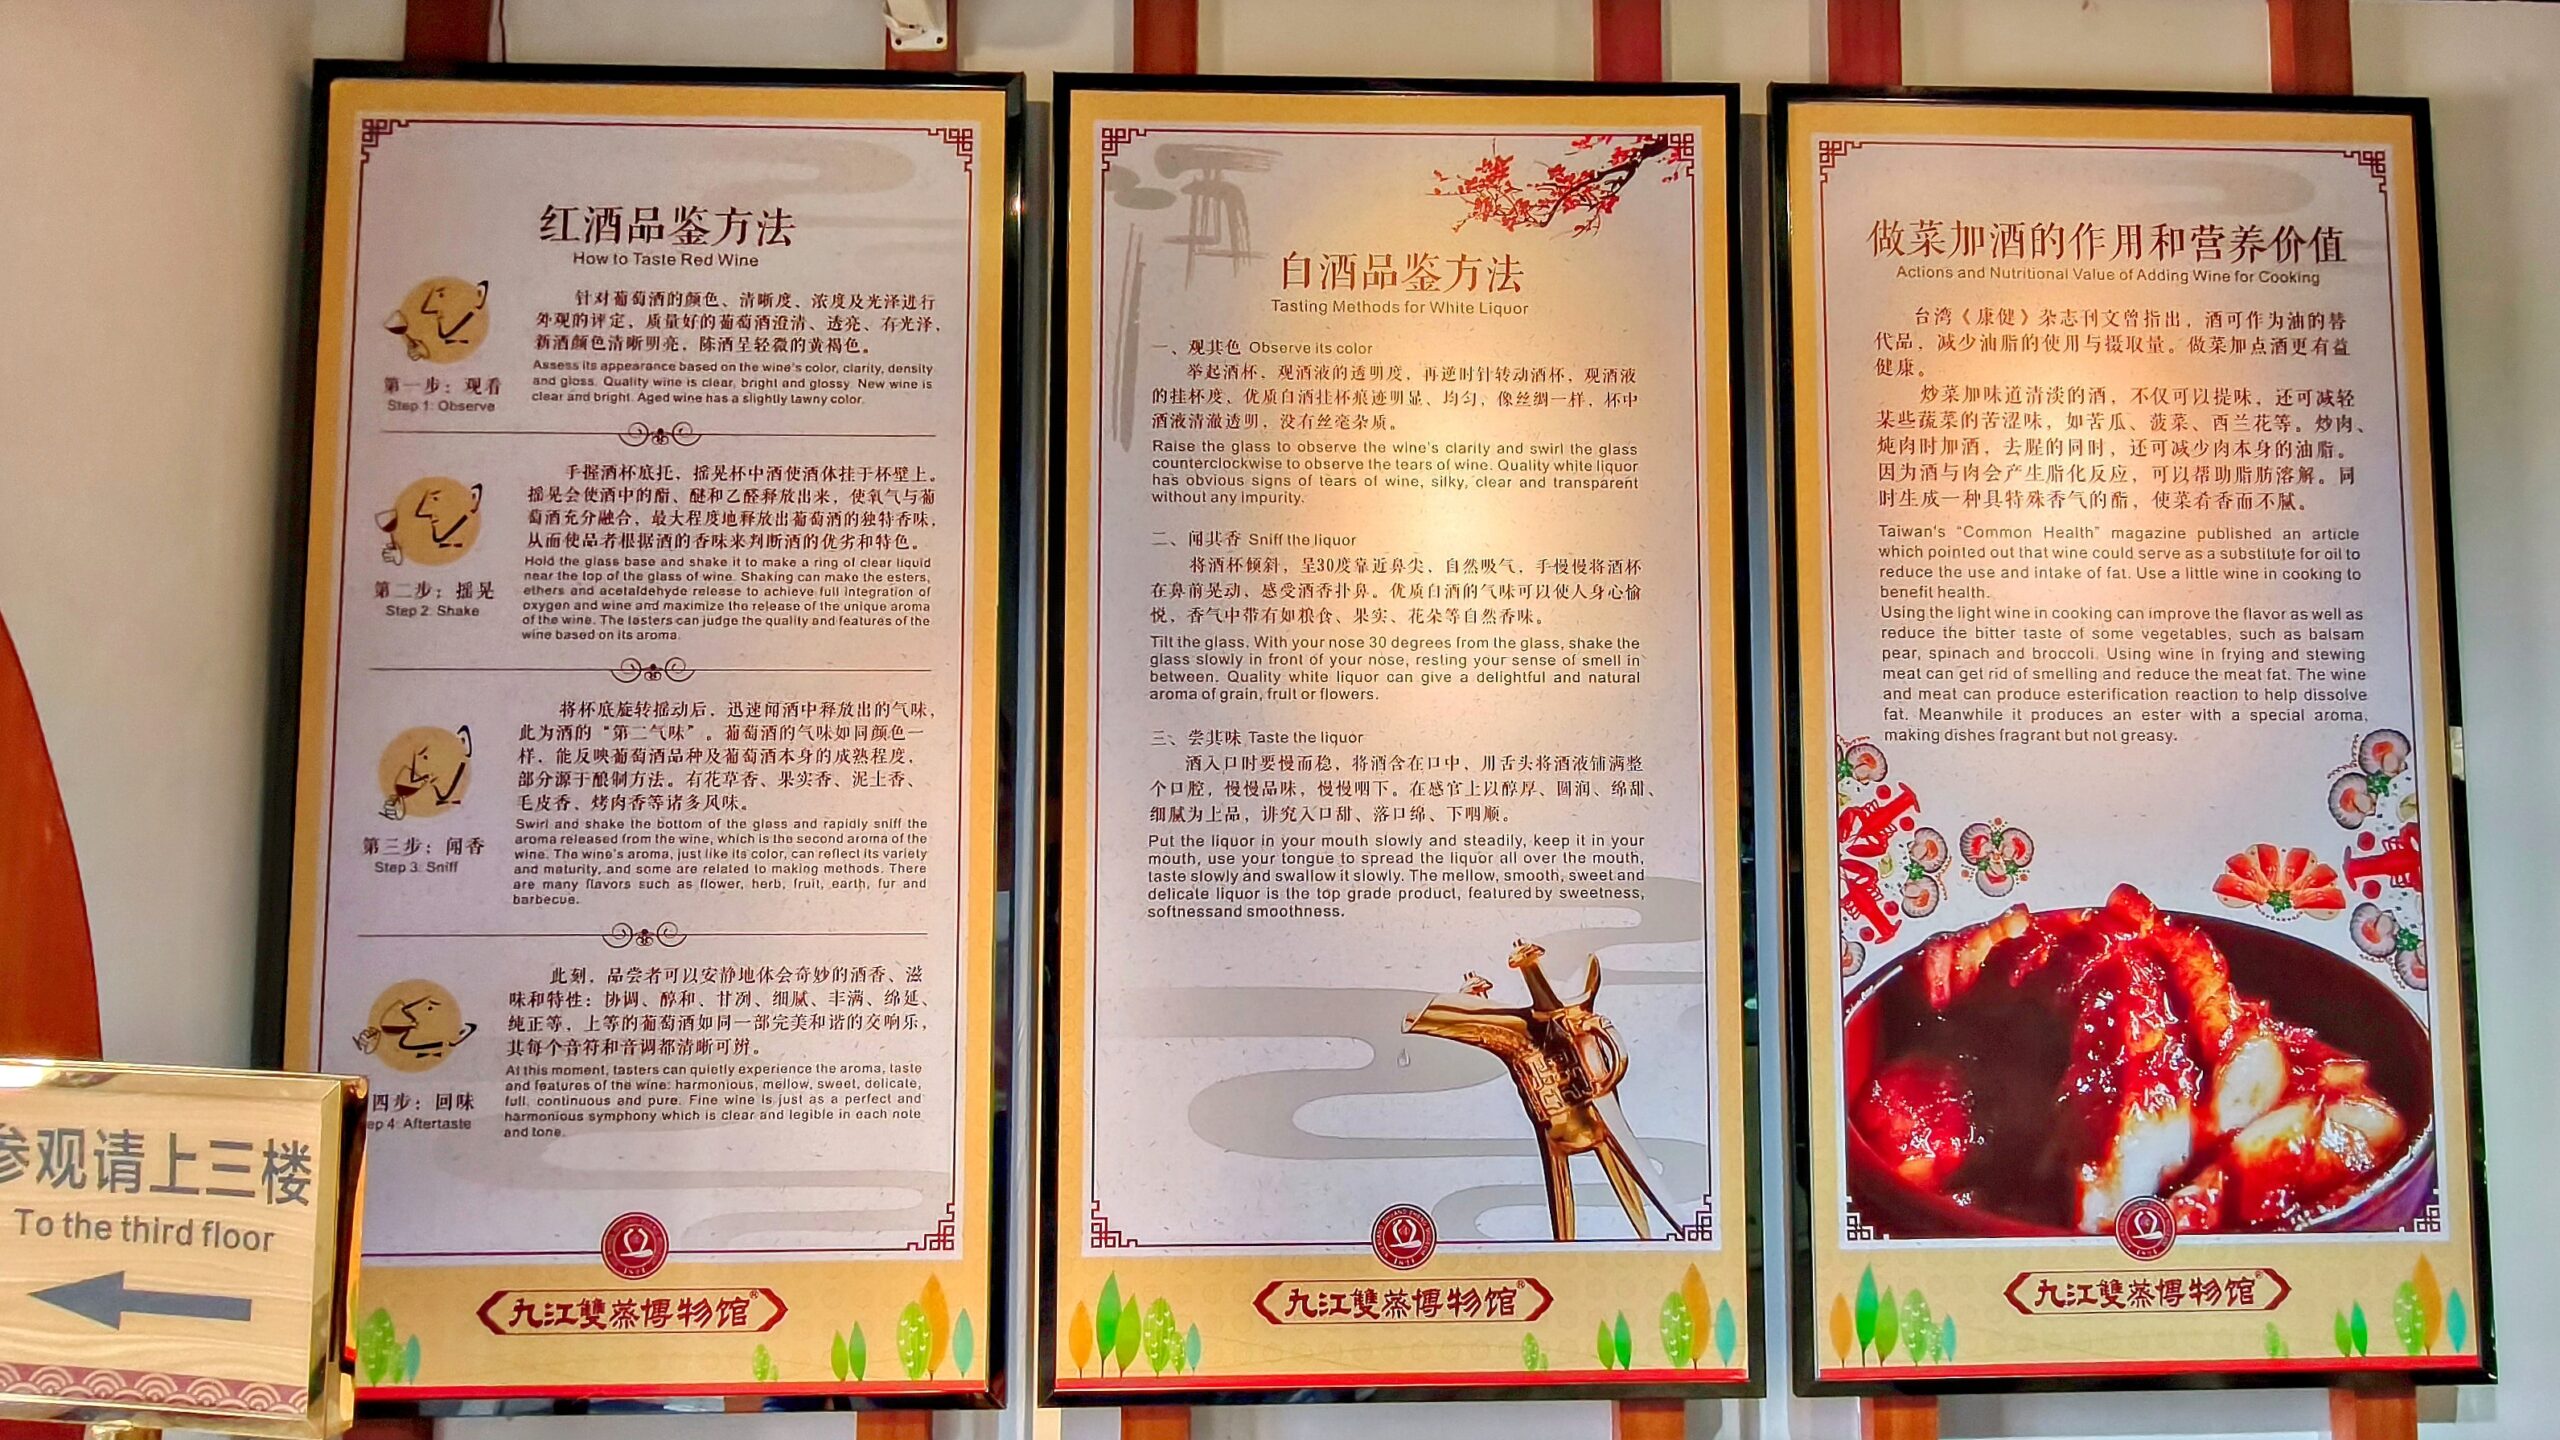 红酒品鉴方法
How to Taste Red Wine
针对葡萄酒的颜色、清晰度、浓度及光泽进行
外观的评定，质量好的葡萄酒澄清、透亮、有光泽，
新酒颜色清晰明亮，陈酒呈轻微的黄褐色。
Assess its appearance based on the wine's color, clarity, density
and gloss. Quality wine is clear, bright and glossy. New wine is
clear and bright. Aged wine has a slightly tawny color.
第一步：观看
Step 1: Observe
手握酒杯底托，摇晃杯中酒使酒体挂于杯壁上。
摇晃会使酒中的酯、醚和乙醛释放出来，使氧气与葡
萄酒充分融合，最大程度地释放出葡萄酒的独特香味，
从而使品者根据酒的香味来判断酒的优劣和特色。
Hold the glass base and shake it to make a ring of clear liquid
near the top of the glass of wine. Shaking can make the esters,
ethers and acetaldehyde release to achieve full integration of
oxygen and wine and maximize the release of the unique aroma
of the wine. The tasters can judge the quality and features of the
wine based on its aroma.
第二步：摇晃
Step 2: Shake
将杯底旋转摇动后，迅速闻酒中释放出的气味，
此为酒的“第二气味”。葡萄酒的气味如同颜色一
样，能反映葡萄酒品种及葡萄酒本身的成熟程度，
部分源于酿制方法。有花草香、果实香、泥土香、
毛皮香、烤肉香等诸多风味。
Swirl and shake the bottom of the glass and rapidly sniff the
aroma released from the wine, which is the second aroma of the
wine. The wine's aroma, just like its color, can reflect its variety
and maturity, and some are related to making methods. There
are many flavors such as flower, herb, fruit, earth, fur and
barbecue.
第三步：闻香
Step 3: Sniff
此刻，品尝者可以安静地体会奇妙的酒香、滋
味和特性：协调、醇和、甘冽、细腻、丰满、绵延、
纯正等，上等的葡萄酒如同一部完美和谐的交响乐，
其每个音符和音调都清晰可辨。
At this moment, tasters can quietly experience the aroma, taste
and features of the wine: harmonious, mellow, sweet, delicate,
full, continuous and pure. Fine wine is just as a perfect and
harmonious symphony which is clear and legible in each note
and tone.
四步：回味
ep 4: Aftertaste
九江雙蒸博物馆®
白酒品鉴方法
Tasting Methods for White Liquor
一、观其色 Observe its color
举起酒杯，观酒液的透明度，再逆时针转动酒杯，观酒液
的挂杯度、优质白酒挂杯痕迹明显、均匀，像丝绸一样，杯中
酒液清澈透明，没有丝毫杂质。
Raise the glass to observe the wine's clarity and swirl the glass
counterclockwise to observe the tears of wine. Quality white liquor
has obvious signs of tears of wine, silky, clear and transparent
without any impurity.
二、闻其香 Sniff the liquor
将酒杯倾斜，呈30度靠近鼻尖、自然吸气，手慢慢将酒杯
在鼻前晃动、感受酒香扑鼻。优质白酒的气味可以使人身心愉
悦，香气中带有如粮食、果实、花朵等自然香味。
Tilt the glass. With your nose 30 degrees from the glass, shake the
glass slowly in front of your nose, resting your sense of smell in
between. Quality white liquor can give a delightful and natural
aroma of grain, fruit or flowers.
三、尝其味 Taste the liquor
酒入口时要慢而稳，将酒含在口中、用舌头将酒液铺满整
个口腔，慢慢品味，慢慢咽下。在感官上以醇厚、圆润、绵甜、
细腻为上品，讲究入口甜、落口绵、下咽顺。
Put the liquor in your mouth slowly and steadily, keep it in your
mouth, use your tongue to spread the liquor all over the mouth,
taste slowly and swallow it slowly. The mellow, smooth, sweet and
delicate liquor is the top grade product, featured by sweetness,
softnessand smoothness.
九江雙蒸博物馆®
做菜加酒的作用和营养价值
Actions and Nutritional Value of Adding Wine for Cooking
台湾《康健》杂志刊文曾指出，酒可作为油的替
代品，减少油脂的使用与摄取量。做菜加点酒更有益
健康。
炒菜加味道清淡的酒，不仅可以提味，还可减轻
某些蔬菜的苦涩味，如苦瓜、菠菜、西兰花等。炒肉、
炖肉时加酒，去腥的同时，还可减少肉本身的油脂。
因为酒与肉会产生脂化反应，可以帮助脂肪溶解。同
时生成一种具特殊香气的酯，使菜肴香而不腻。
Taiwan's “Common Health” magazine published an article
which pointed out that wine could serve as a substitute for oil to
reduce the use and intake of fat. Use a little wine in cooking to
benefit health.
Using the light wine in cooking can improve the flavor as well as
reduce the bitter taste of some vegetables, such as balsam
pear, spinach and broccoli. Using wine in frying and stewing
meat can get rid of smelling and reduce the meat fat. The wine
and meat can produce esterification reaction to help dissolve
fat. Meanwhile it produces an ester with a special aroma,
making dishes fragrant but not greasy.
九江雙蒸博物馆®
参观请上三楼
To the third floor